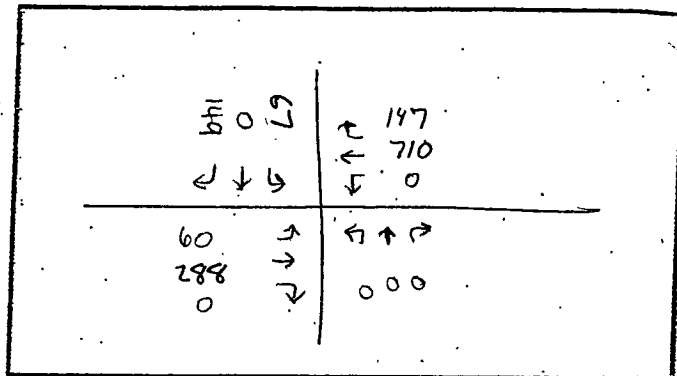 149 0 67
147
710
0
60
288
0
0 0 0